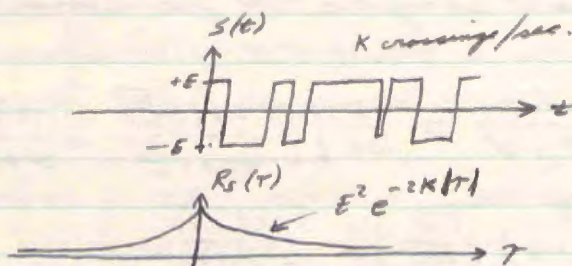 S(t)
K crossings/sec.
+E
t
-E
Rs(T)
E² e^-2K|T|
T